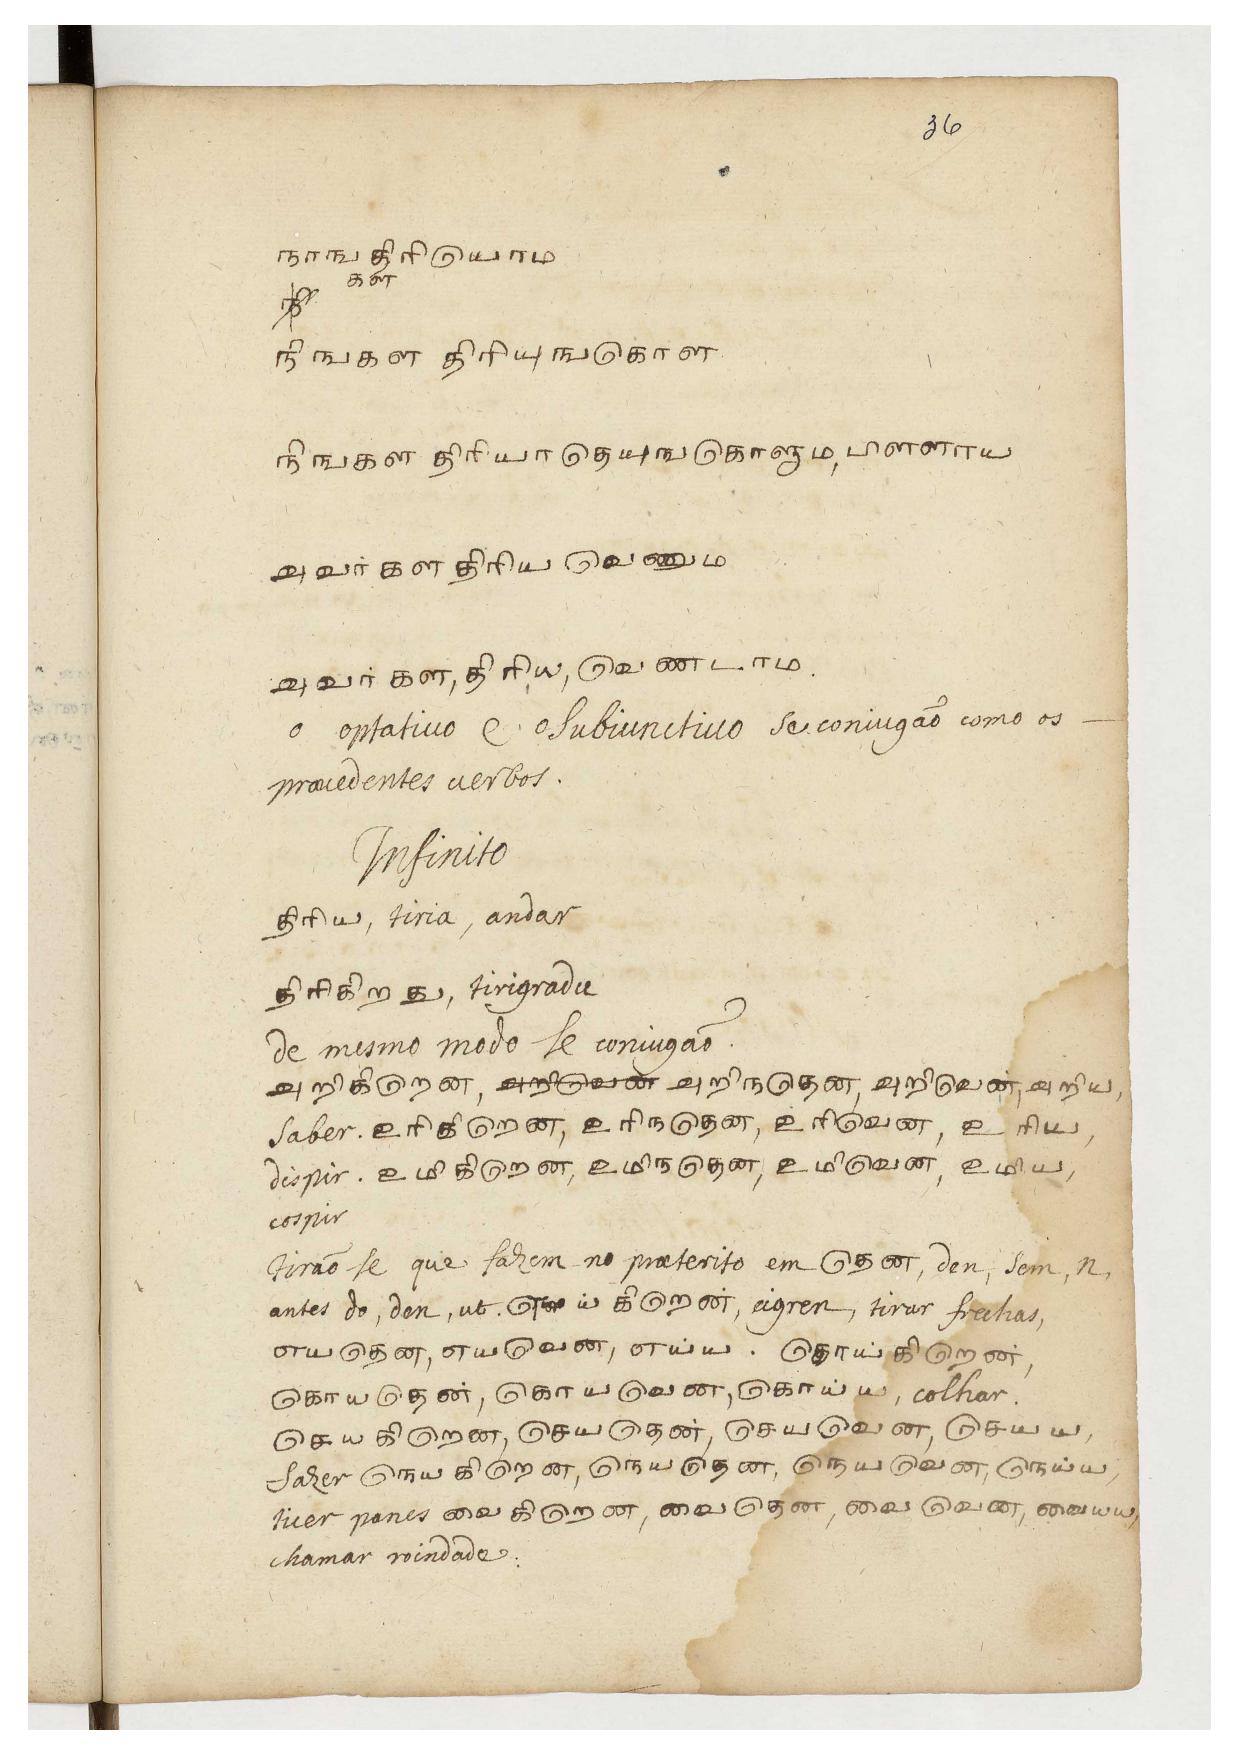 36
நாங திரியொம
கள
நிஙகள திரியுஙகொள
நிஙகள திரியாதெயுஙகொளும, பிளளாய
அவர்கள திரிய வெணும
அவர்கள, திரிய, வெணடாம.
o optatiuo e o Subiunctiuo se coniugaõ como os —
præcedentes uerbos.
Infinito
திரிய, tiria, andar
திரிகிறது, tirigradu
de mesmo modo se coniugaõ.
அறிகிறென, அறிவென் அறிநதென, அறிவென், அறிய,
saber. உரிகிறென, உரிநதென, உரிவென, உரிய,
dispir. உமிகிறென, உமிநதென, உமிவென, உமிய,
cospir
tiraõ se que fazem no præterito em தென, den, sem, n,
antes do, den, ut. எய்கிறென், eigren, tirar frechas,
எயதென, எயவென, எய்ய. கொய்கிறென்,
கொயதென், கொயவென, கொய்ய, colhar.
செயகிறென, செயதென், செயவென, செயய,
fazer நெயகிறென, நெயதென, நெயவென, நெய்ய,
ticer panos வைகிறென, வைதென, வைவென, வையய,
chamar roindade.